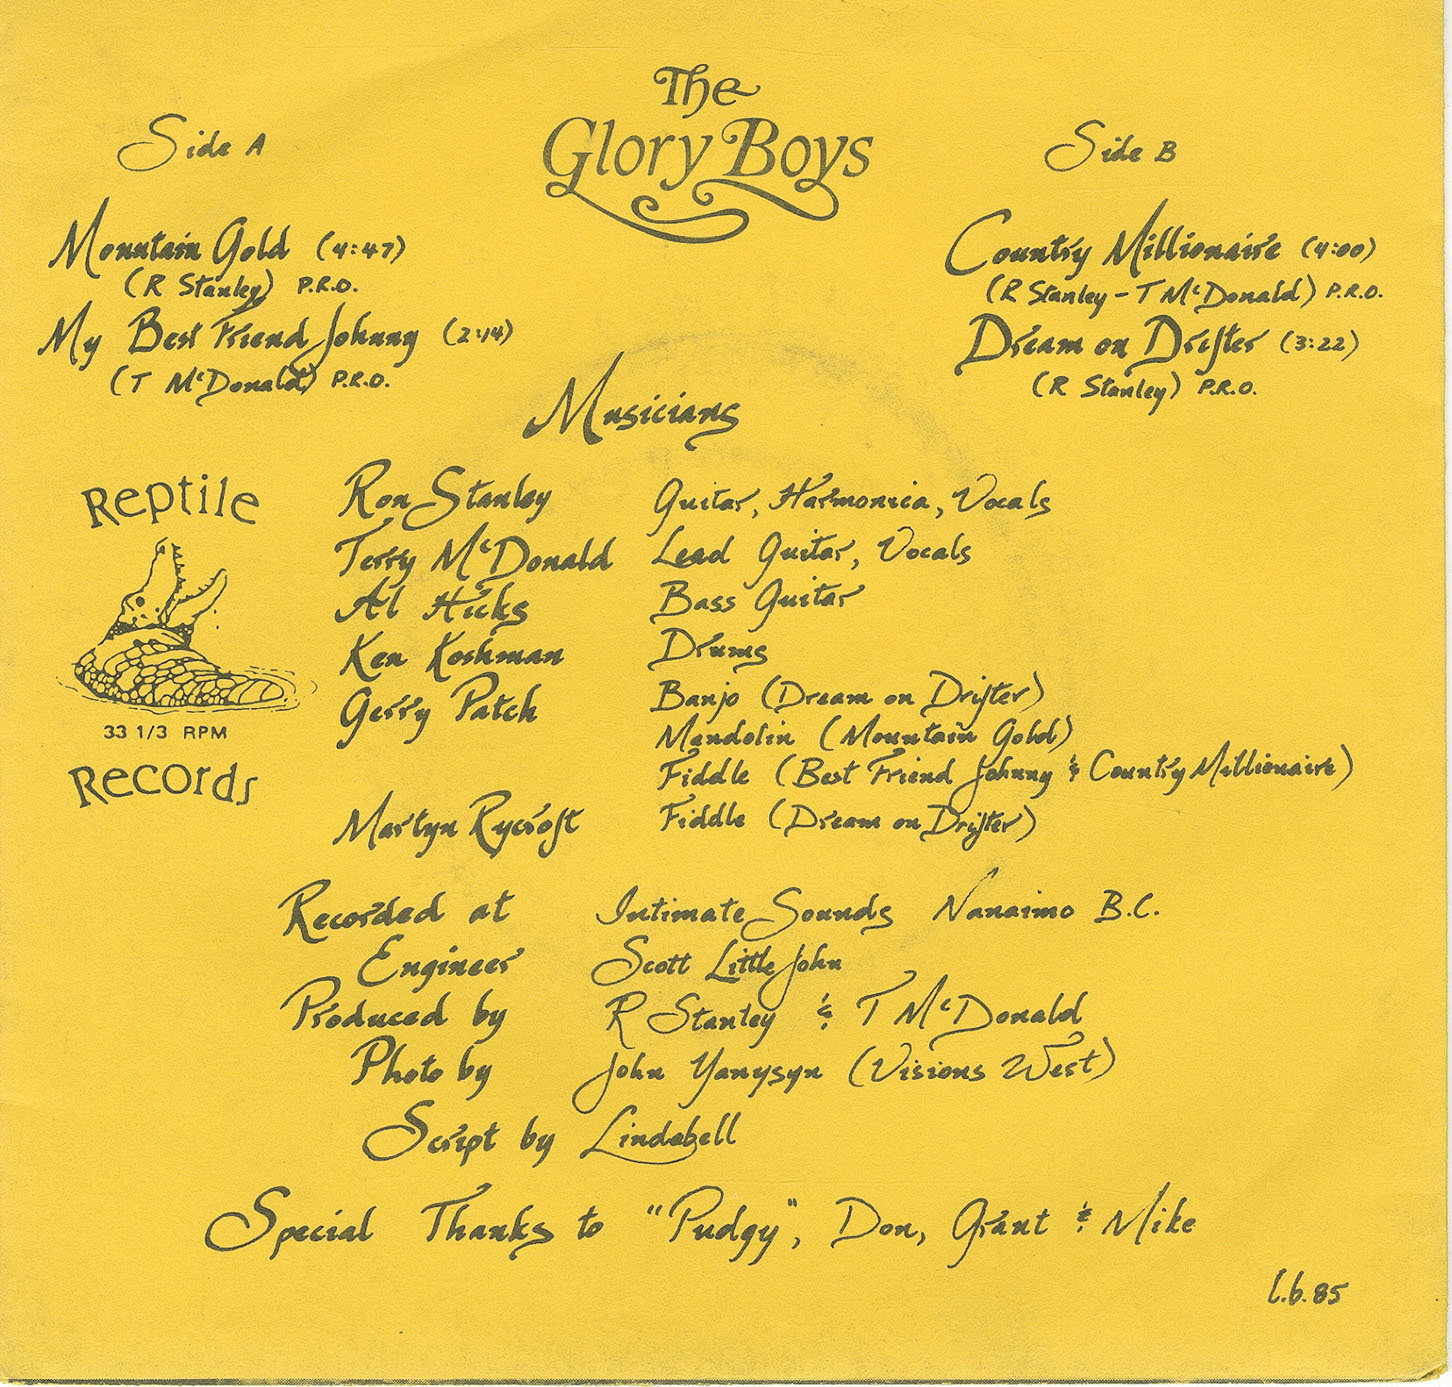 The
Glory Boys
Side A
Mountain Gold (4:47)
(R Stanley) P.R.O.
My Best Friend Johnny (2:14)
(T McDonald) P.R.O.
Side B
Country Millionaire (4:00)
(R Stanley - T McDonald) P.R.O.
Dream on Drifter (3:22)
(R Stanley) P.R.O.
Musicians
Reptile
33 1/3 RPM
Records
Ron Stanley Guitar, Harmonica, Vocals
Terry McDonald Lead Guitar, Vocals
Al Hicks Bass Guitar
Ken Koshman Drums
Gerry Patch Banjo (Dream on Drifter)
Mandolin (Mountain Gold)
Fiddle (Best Friend Johnny & Country Millionaire)
Martyn Rycroft Fiddle (Dream on Drifter)
Recorded at Intimate Sounds Nanaimo B.C.
Engineer Scott LittleJohn
Produced by R Stanley & T McDonald
Photo by John Yanysyn (Visions West)
Script by Lindabell
Special Thanks to "Pudgy", Don, Grant & Mike
l.b.85